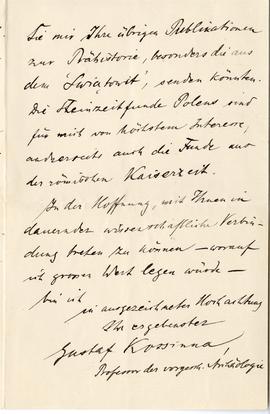 Sie mir Ihre übrigen Publikationen
zur Prähistorie, besonders die aus
dem 'Swiatowit', senden könnten.
Die Steinzeitfunde Polens sind
für mich von höchstem Interesse,
andererseits auch die Funde aus
der römischen Kaiserzeit.
In der Hoffnung, mit Ihnen in
dauernder wissenschaftliche Verbin-
dung treten zu können – worauf
ich grossen Wert legen würde –
bin ich
in ausgezeichneter Hochachtung
Ihr ergebenster
Gustaf Kossinna,
Professor der vorgesch. Archäologie